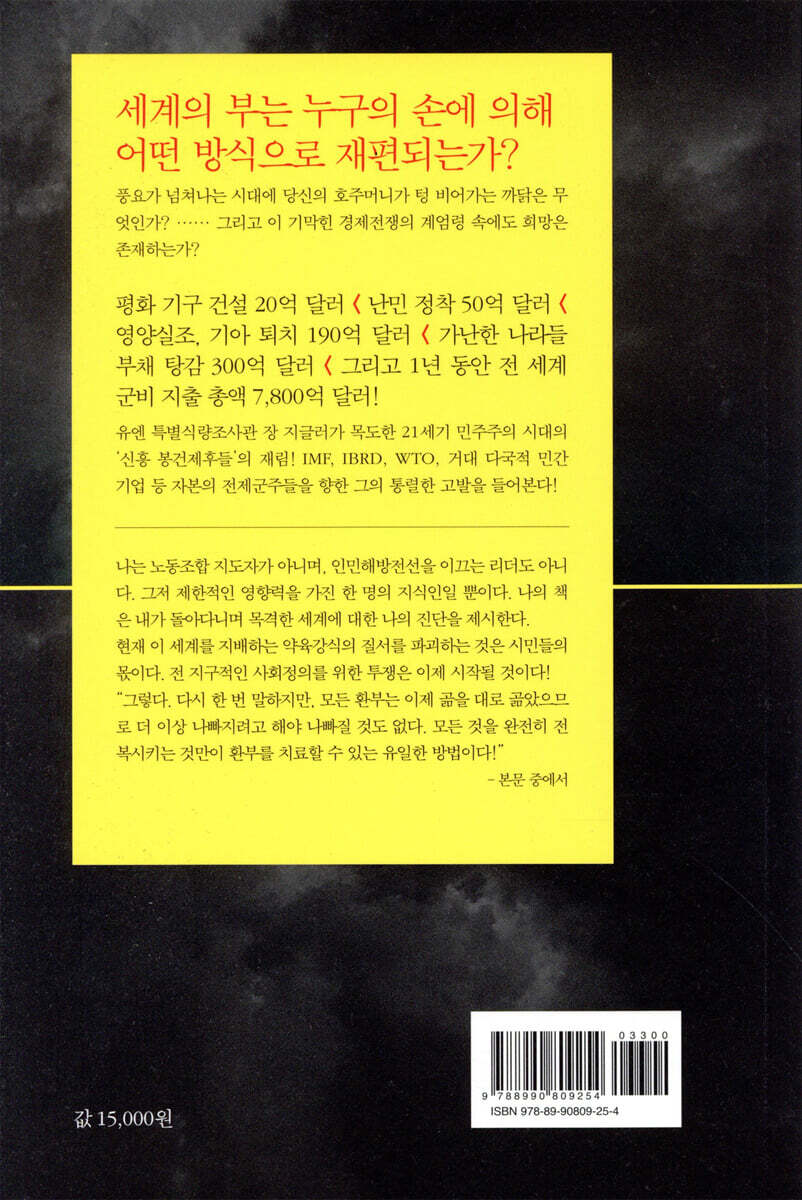 세계의 부는 누구의 손에 의해
어떤 방식으로 재편되는가?
풍요가 넘쳐나는 시대에 당신의 호주머니가 텅 비어가는 까닭은 무
엇인가? …… 그리고 이 기막힌 경제전쟁의 계엄령 속에도 희망은
존재하는가?
평화 기구 건설 20억 달러 < 난민 정착 50억 달러 <
영양실조, 기아 퇴치 190억 달러 < 가난한 나라들
부채 탕감 300억 달러 < 그리고 1년 동안 전 세계
군비 지출 총액 7,800억 달러!
유엔 특별식량조사관 장 지글러가 목도한 21세기 민주주의 시대의
'신흥 봉건제후들'의 재림! IMF, IBRD, WTO, 거대 다국적 민간
기업 등 자본의 전제군주들을 향한 그의 통렬한 고발을 들어본다!
나는 노동조합 지도자가 아니며, 인민해방전선을 이끄는 리더도 아니
다. 그저 제한적인 영향력을 가진 한 명의 지식인일 뿐이다. 나의 책
은 내가 돌아다니며 목격한 세계에 대한 나의 진단을 제시한다.
현재 이 세계를 지배하는 약육강식의 질서를 파괴하는 것은 시민들의
몫이다. 전 지구적인 사회정의를 위한 투쟁은 이제 시작될 것이다!
“그렇다. 다시 한 번 말하지만, 모든 환부는 이제 곪을 대로 곪았으므
로 더 이상 나빠지려고 해야 나빠질 것도 없다. 모든 것을 완전히 전
복시키는 것만이 환부를 치료할 수 있는 유일한 방법이다!”
– 본문 중에서
03300
9 788990 809254
ISBN 978-89-90809-25-4
값 15,000원